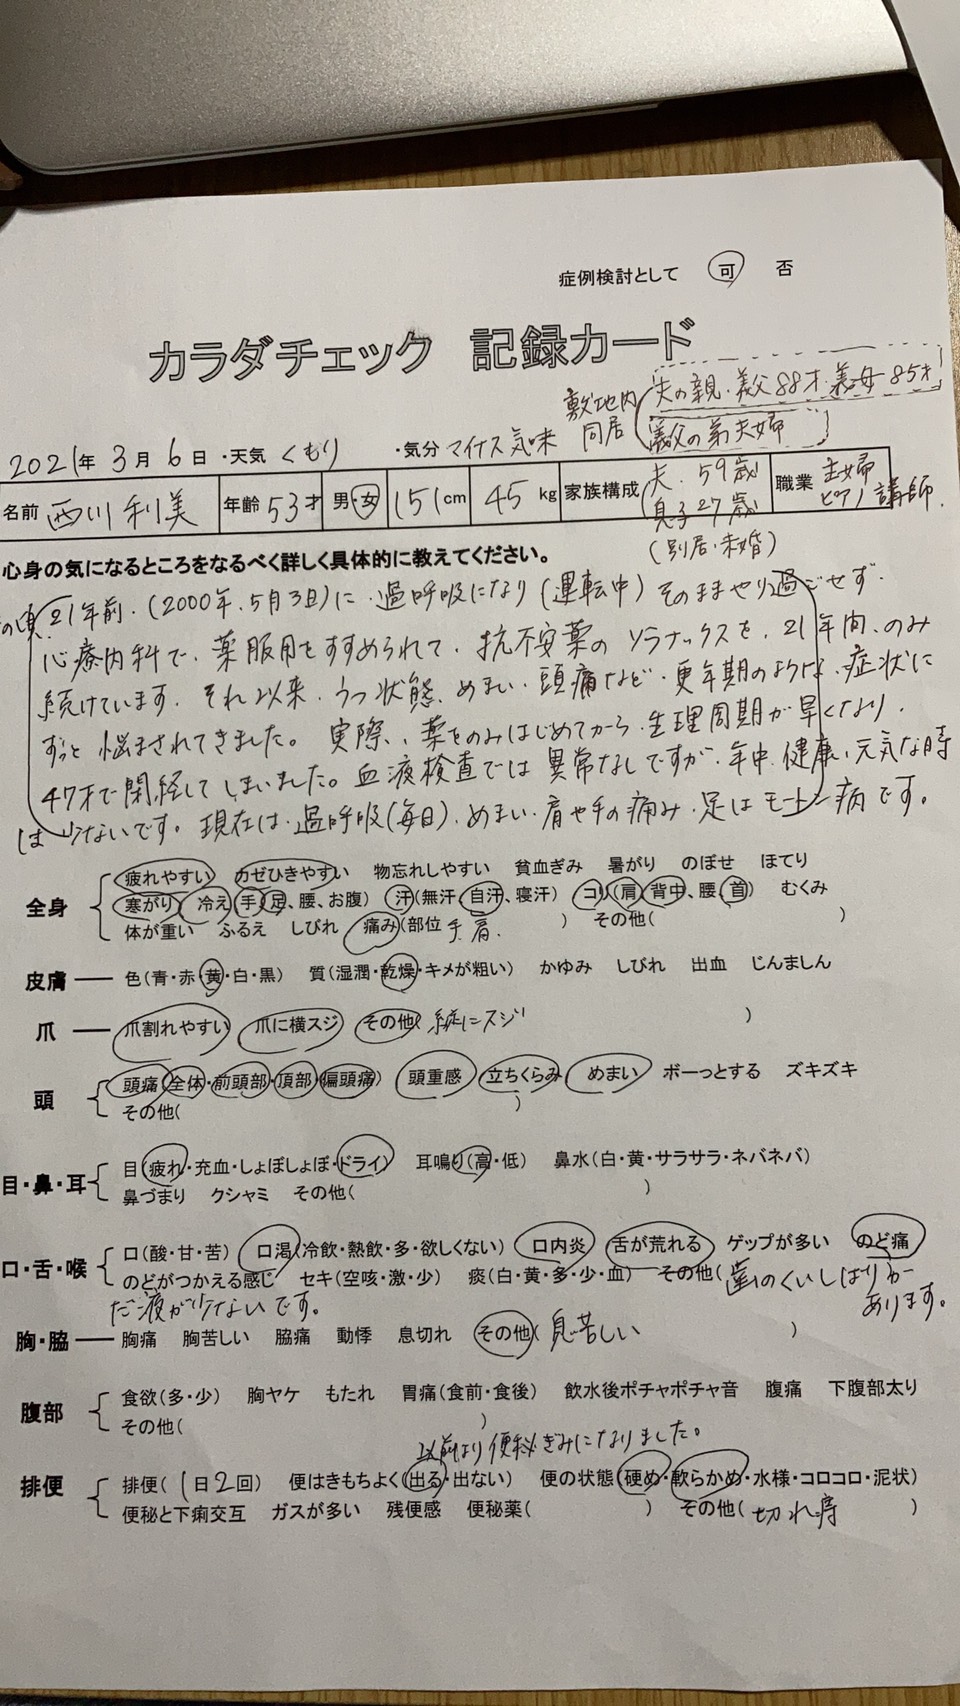 症例検討として 可 否
カラダチェック 記録カード
敷地内同居 夫の親・義父88才・義母85才
義父の弟夫婦
2021年 3月 6日 ・天気 くもり ・気分 マイナス気味
名前 西川利美 年齢 53才 男・女 151cm 45kg 家族構成 夫・59歳 息子27歳 職業 主婦 ピアノ講師.
(別居・未婚)
心身の気になるところをなるべく詳しく具体的に教えてください。
21年前・(2000年.5月3日)に・過呼吸になり(運転中)そのままやり過ごせず・
心療内科で、薬服用をすすめられて、抗不安薬のソラナックスを、21年間、のみ
続けています。それ以来、うつ状態、めまい・頭痛など・更年期のような、症状に
ずっと悩まされてきました。実際、薬をのみはじめてから、生理周期が早くなり、
47才で閉経してしまいました。血液検査では異常なしですが・年中、健康、元気な時
は少ないです。現在は・過呼吸(毎日)、めまい・肩や手の痛み・足はモートン病です。
全身 疲れやすい カゼひきやすい 物忘れしやすい 貧血ぎみ 暑がり のぼせ ほてり
寒がり 冷え(手、足、腰、お腹) 汗(無汗、自汗、寝汗) コリ(肩、背中、腰、首) むくみ
体が重い ふるえ しびれ 痛み(部位 手.肩. ) その他( )
皮膚 色(青・赤・黄・白・黒) 質(湿潤・乾燥・キメが粗い) かゆみ しびれ 出血 じんましん
爪 爪割れやすい 爪に横スジ その他( 縦にスジ )
頭 頭痛(全体・前頭部・頂部・偏頭痛) 頭重感 立ちくらみ めまい ボーっとする ズキズキ
その他( )
目・鼻・耳 目(疲れ・充血・しょぼしょぼ・ドライ) 耳鳴り(高・低) 鼻水(白・黄・サラサラ・ネバネバ)
鼻づまり クシャミ その他( )
口・舌・喉 口(酸・甘・苦) 口渇(冷飲・熱飲・多・欲しくない) 口内炎 舌が荒れる ゲップが多い のど痛
のどがつかえる感じ セキ(空咳・激・少) 痰(白・黄・多・少・血) その他( 歯のくいしばりが
だ液が少ないです。 あります。
胸・脇 胸痛 胸苦しい 脇痛 動悸 息切れ その他( 息苦しい )
腹部 食欲(多・少) 胸ヤケ もたれ 胃痛(食前・食後) 飲水後ポチャポチャ音 腹痛 下腹部太り
その他( )
以前より便秘ぎみになりました。
排便 排便( 1日2回) 便はきもちよく(出る・出ない) 便の状態(硬め・軟らかめ・水様・コロコロ・泥状)
便秘と下痢交互 ガスが多い 残便感 便秘薬( ) その他( 切れ痔 )